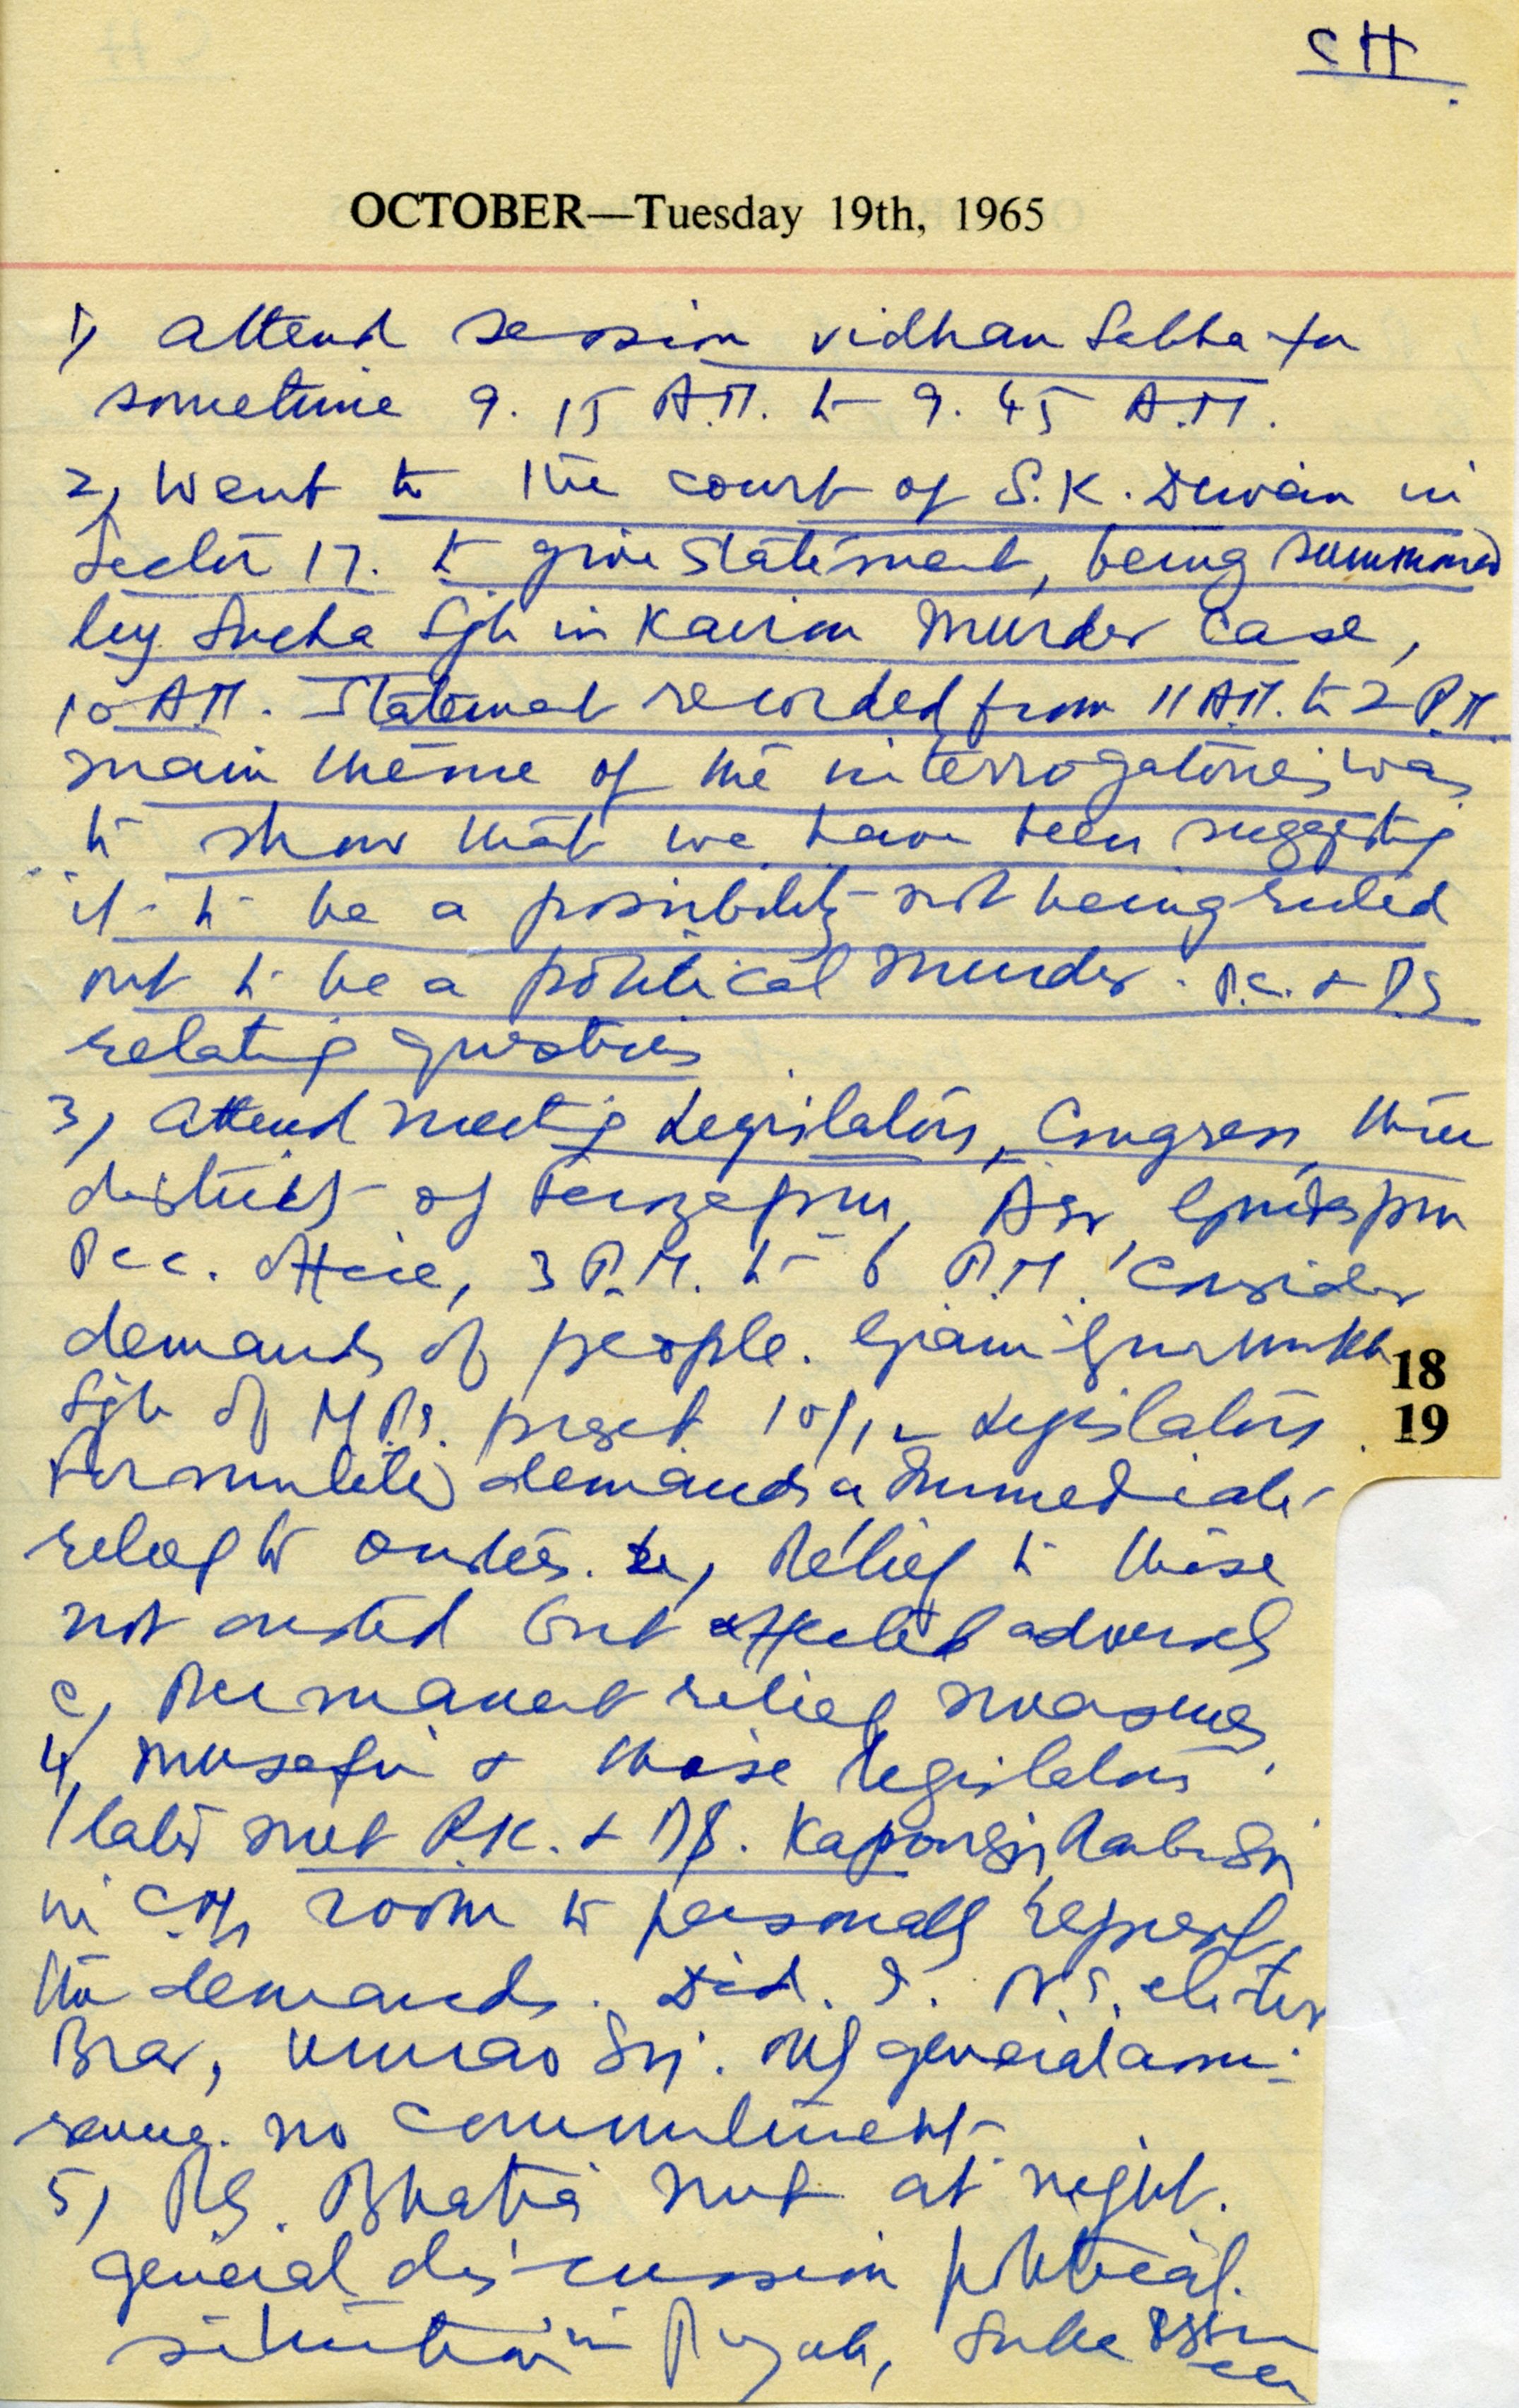 CH.
OCTOBER—Tuesday 19th, 1965
1) Attend session Vidhan Sabha for
sometime 9.15 A.M. to 9.45 A.M.
2) Went to the court of S.K. Dewan in
Sector 17. to give statement, being summoned
by Sucha Sgh in Kairon Murder Case,
10 A.M. Statement recorded from 11 A.M. to 2 P.M.
main theme of the interrogatories was
to show that we have been suggesting
it to be a possibility not being ruled
out to be a political murder. P.C. &
relating questions
3) Attend meeting Legislators, Congress, three
districts of Ferozepur, Asr, Gurdaspur
P.C.C. Office, 3 P.M. to 6 P.M. Consider
demands of people. Giani Gurmukh
Sgh of M.P.s. present 10/12 Legislators
18
19
Formulated demands a Immediate
relief to ousters. b) Relief to those
not ousted but affected adversely
c) Permanent relief measures.
4) Musafir & those legislators
later met R.K. & Kapoorsgh,
in C.M's room to personally
the demands. Did.
Brar, Umrao Sgh. Only general assu-
rance. no commitment.
5) Bhatia met at night.
general discussion political
situation in Punjab,